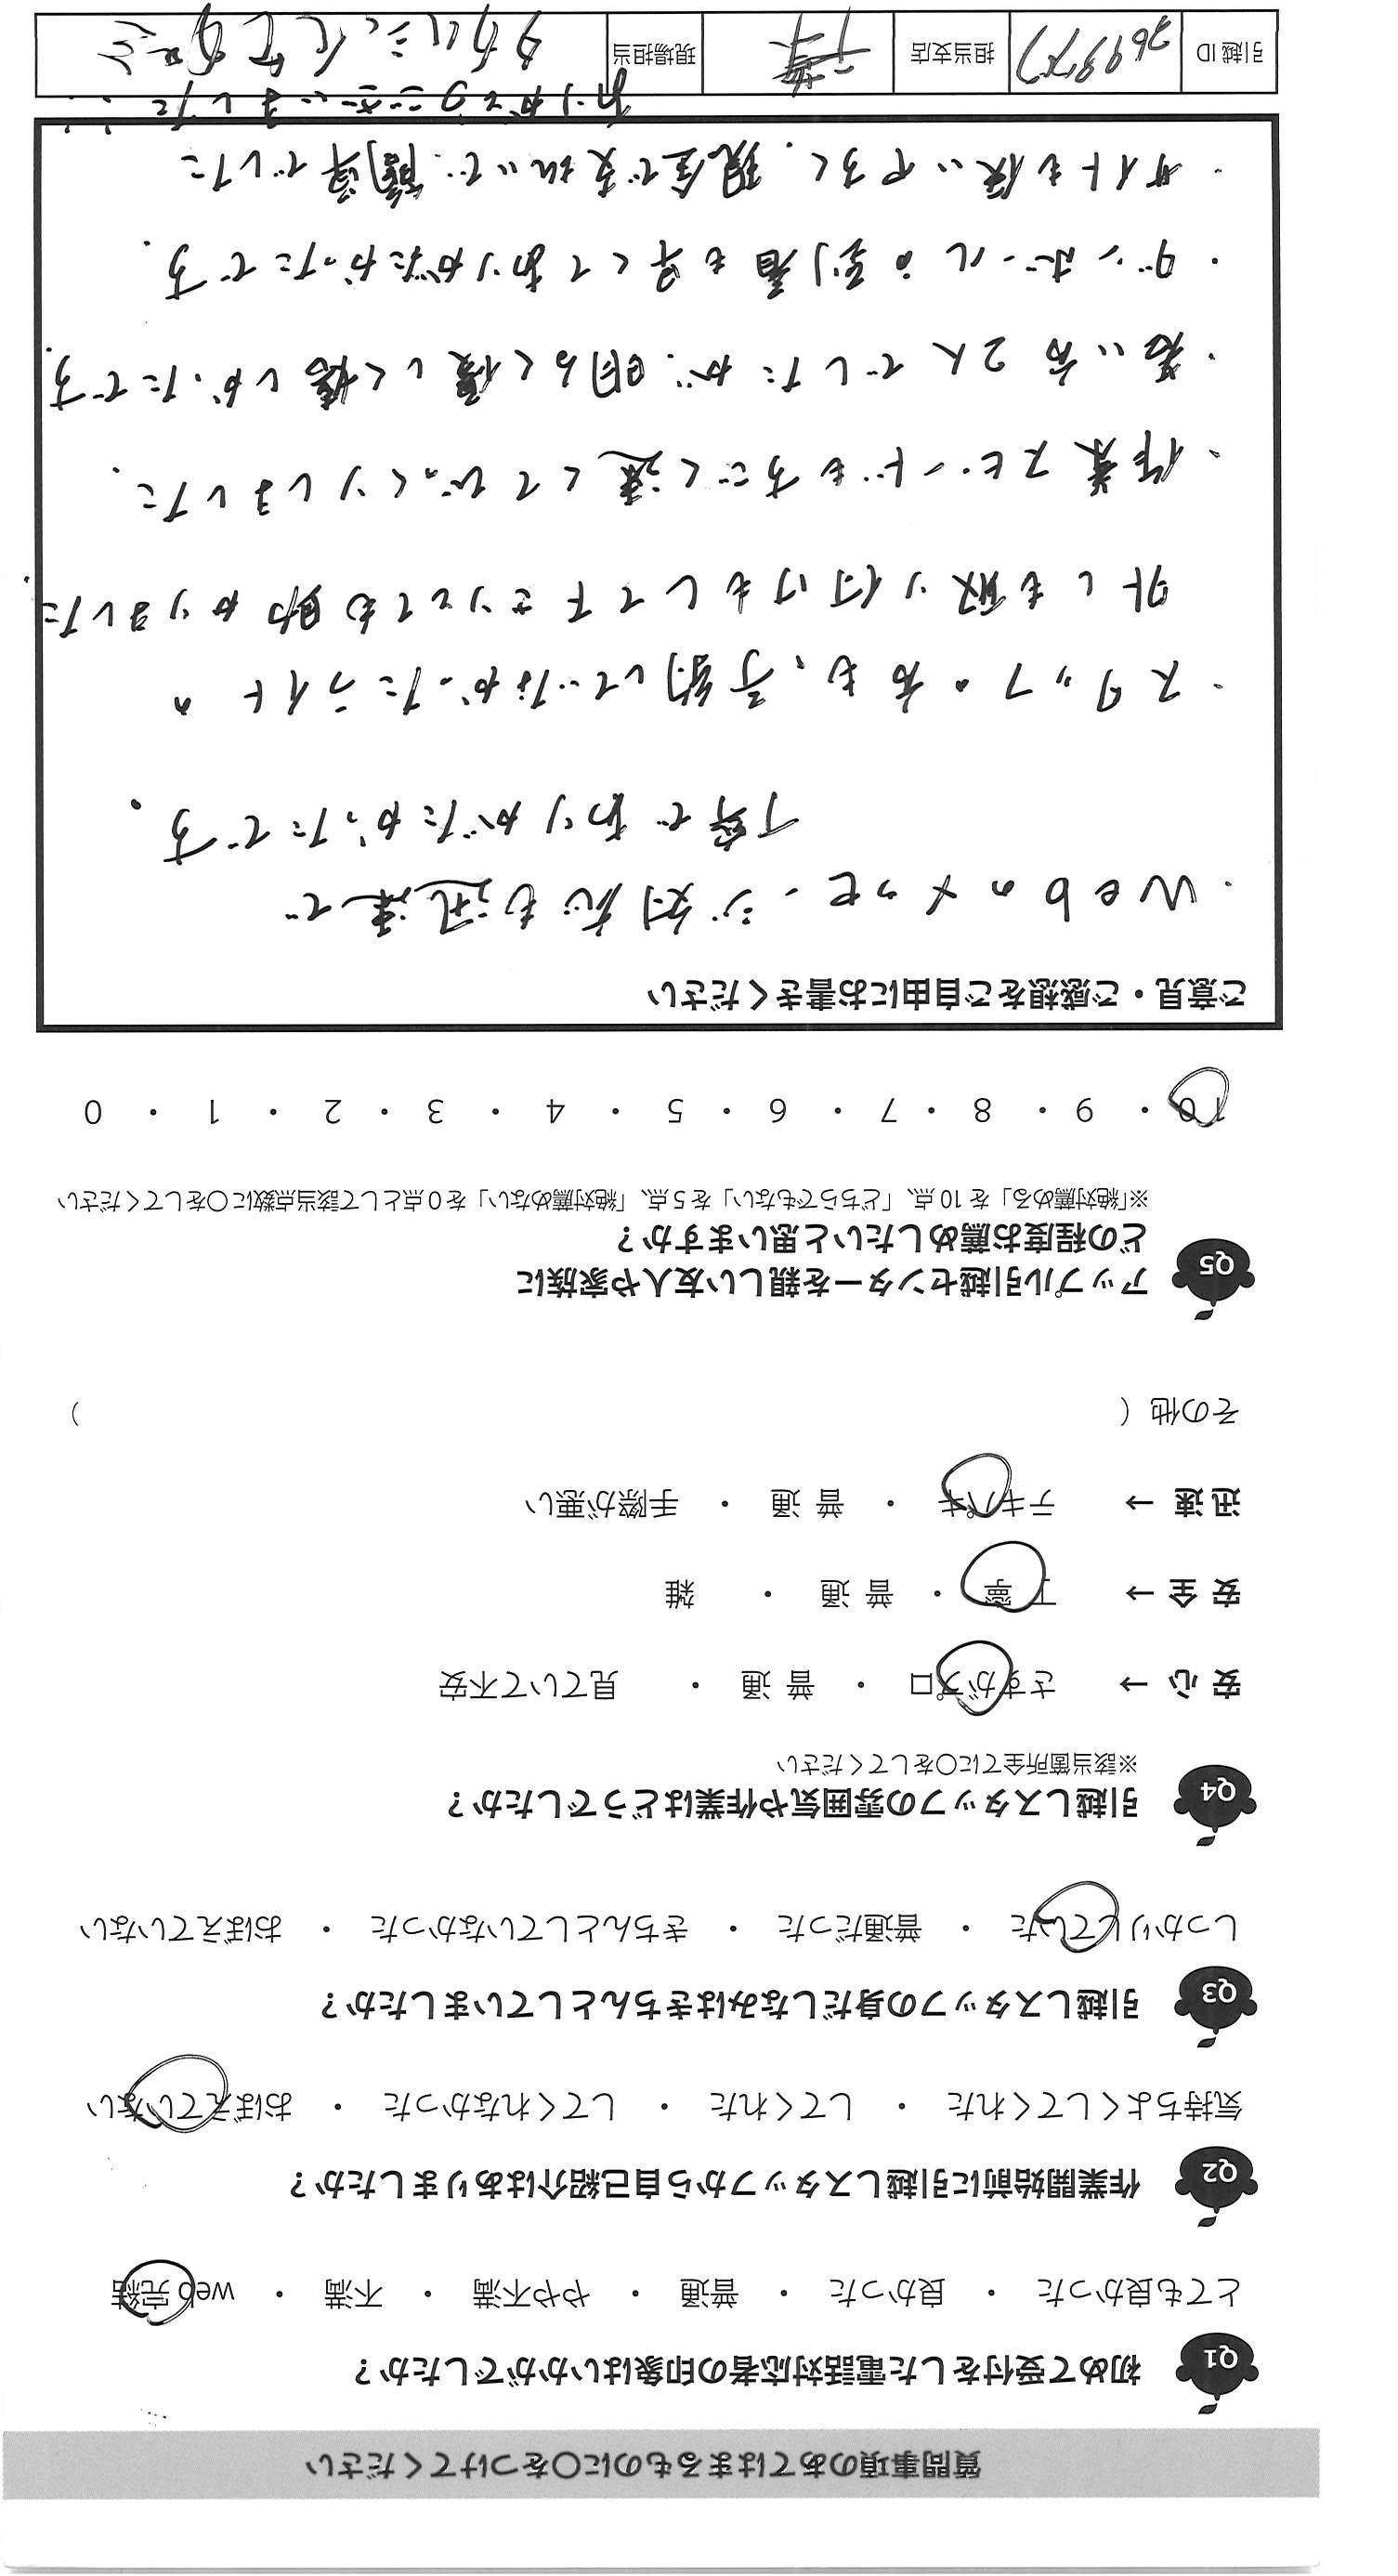 質問事項のあてはまるものに〇をつけてください
Q1 初めて受付をした電話対応者の印象はいかがでしたか？
とても良かった ・ 良かった ・ 普通 ・ やや不満 ・ 不満 ・ web 完結
Q2 作業開始前に引越しスタッフから自己紹介はありましたか？
気持ちよくしてくれた ・ してくれた ・ してくれなかった ・ おぼえていない
Q3 引越しスタッフの身だしなみはきちんとしていましたか？
しっかりしていた ・ 普通だった ・ きちんとしていなかった ・ おぼえていない
Q4 引越しスタッフの雰囲気や作業はどうでしたか？
※該当箇所全てに〇をしてください
安 心 → さすがプロ ・ 普 通 ・ 見ていて不安
安 全 → 丁 寧 ・ 普 通 ・ 雑
迅 速 → テキパキ ・ 普 通 ・ 手際が悪い
その他（ ）
Q5 アップル引越センターを親しい友人や家族に
どの程度お薦めしたいと思いますか？
※「絶対薦める」を 10 点、「どちらでもない」を 5 点、「絶対薦めない」を 0 点として該当点数に〇をしてください
10 ・ 9 ・ 8 ・ 7 ・ 6 ・ 5 ・ 4 ・ 3 ・ 2 ・ 1 ・ 0
ご意見・ご感想をご自由にお書きください
・Webのメッセージ対応も迅速で
丁寧でありがたかったです。
・スタッフの方も、予約していなかったライトの
外しも取り付けもして下さりとても助かりました
・作業スピードもすごく速くてびっくりしました。
・若い方2人でしたが、明るく優しく嬉しかったです。
・ダンボールの到着も早くてありがたかったです。
・サイトも使いやすく、現金で支払いで、簡単でした
ありがとうございました
引越 ID 担当支店 千葉 現場担当